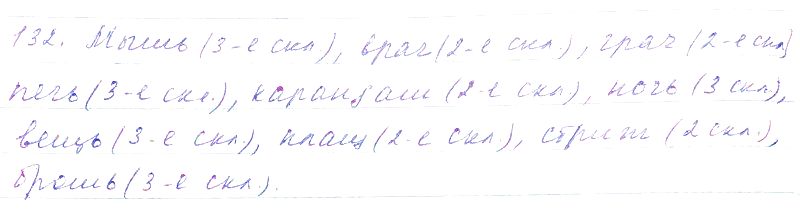 132. Мышь (3-е скл.), врач (2-е скл.), грач (2-е скл)
печь (3-е скл.), карандаш (2-е скл.), ночь (3 скл.),
вещь (3-е скл.), плащ (2-е скл.), стриж (2 скл.),
брошь (3-е скл.).